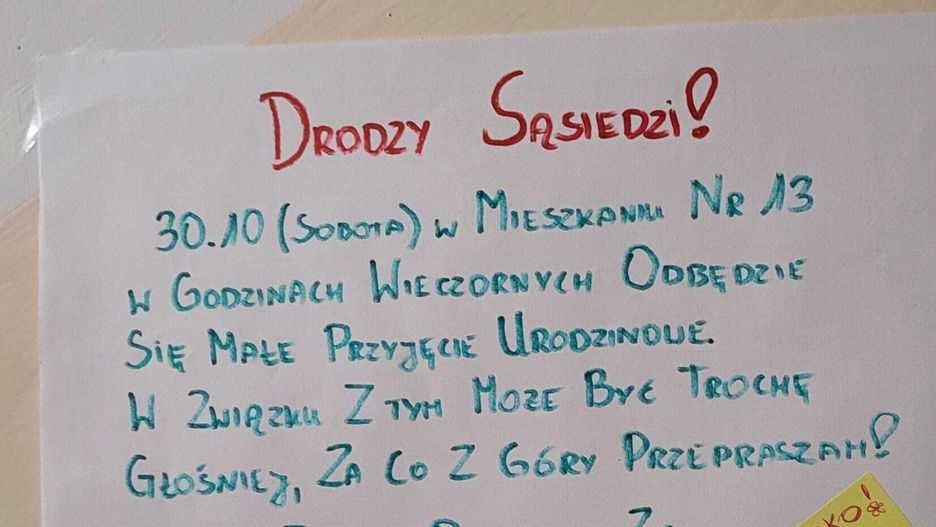 Drodzy Sąsiedzi!
30.10 (Sobota) w Mieszkaniu Nr 13
w Godzinach Wieczornych Odbędzie
Się Małe Przyjęcie Urodzinowe.
W Związku Z tym Może Być Trochę
Głośniej, Za Co Z Góry Przepraszam!